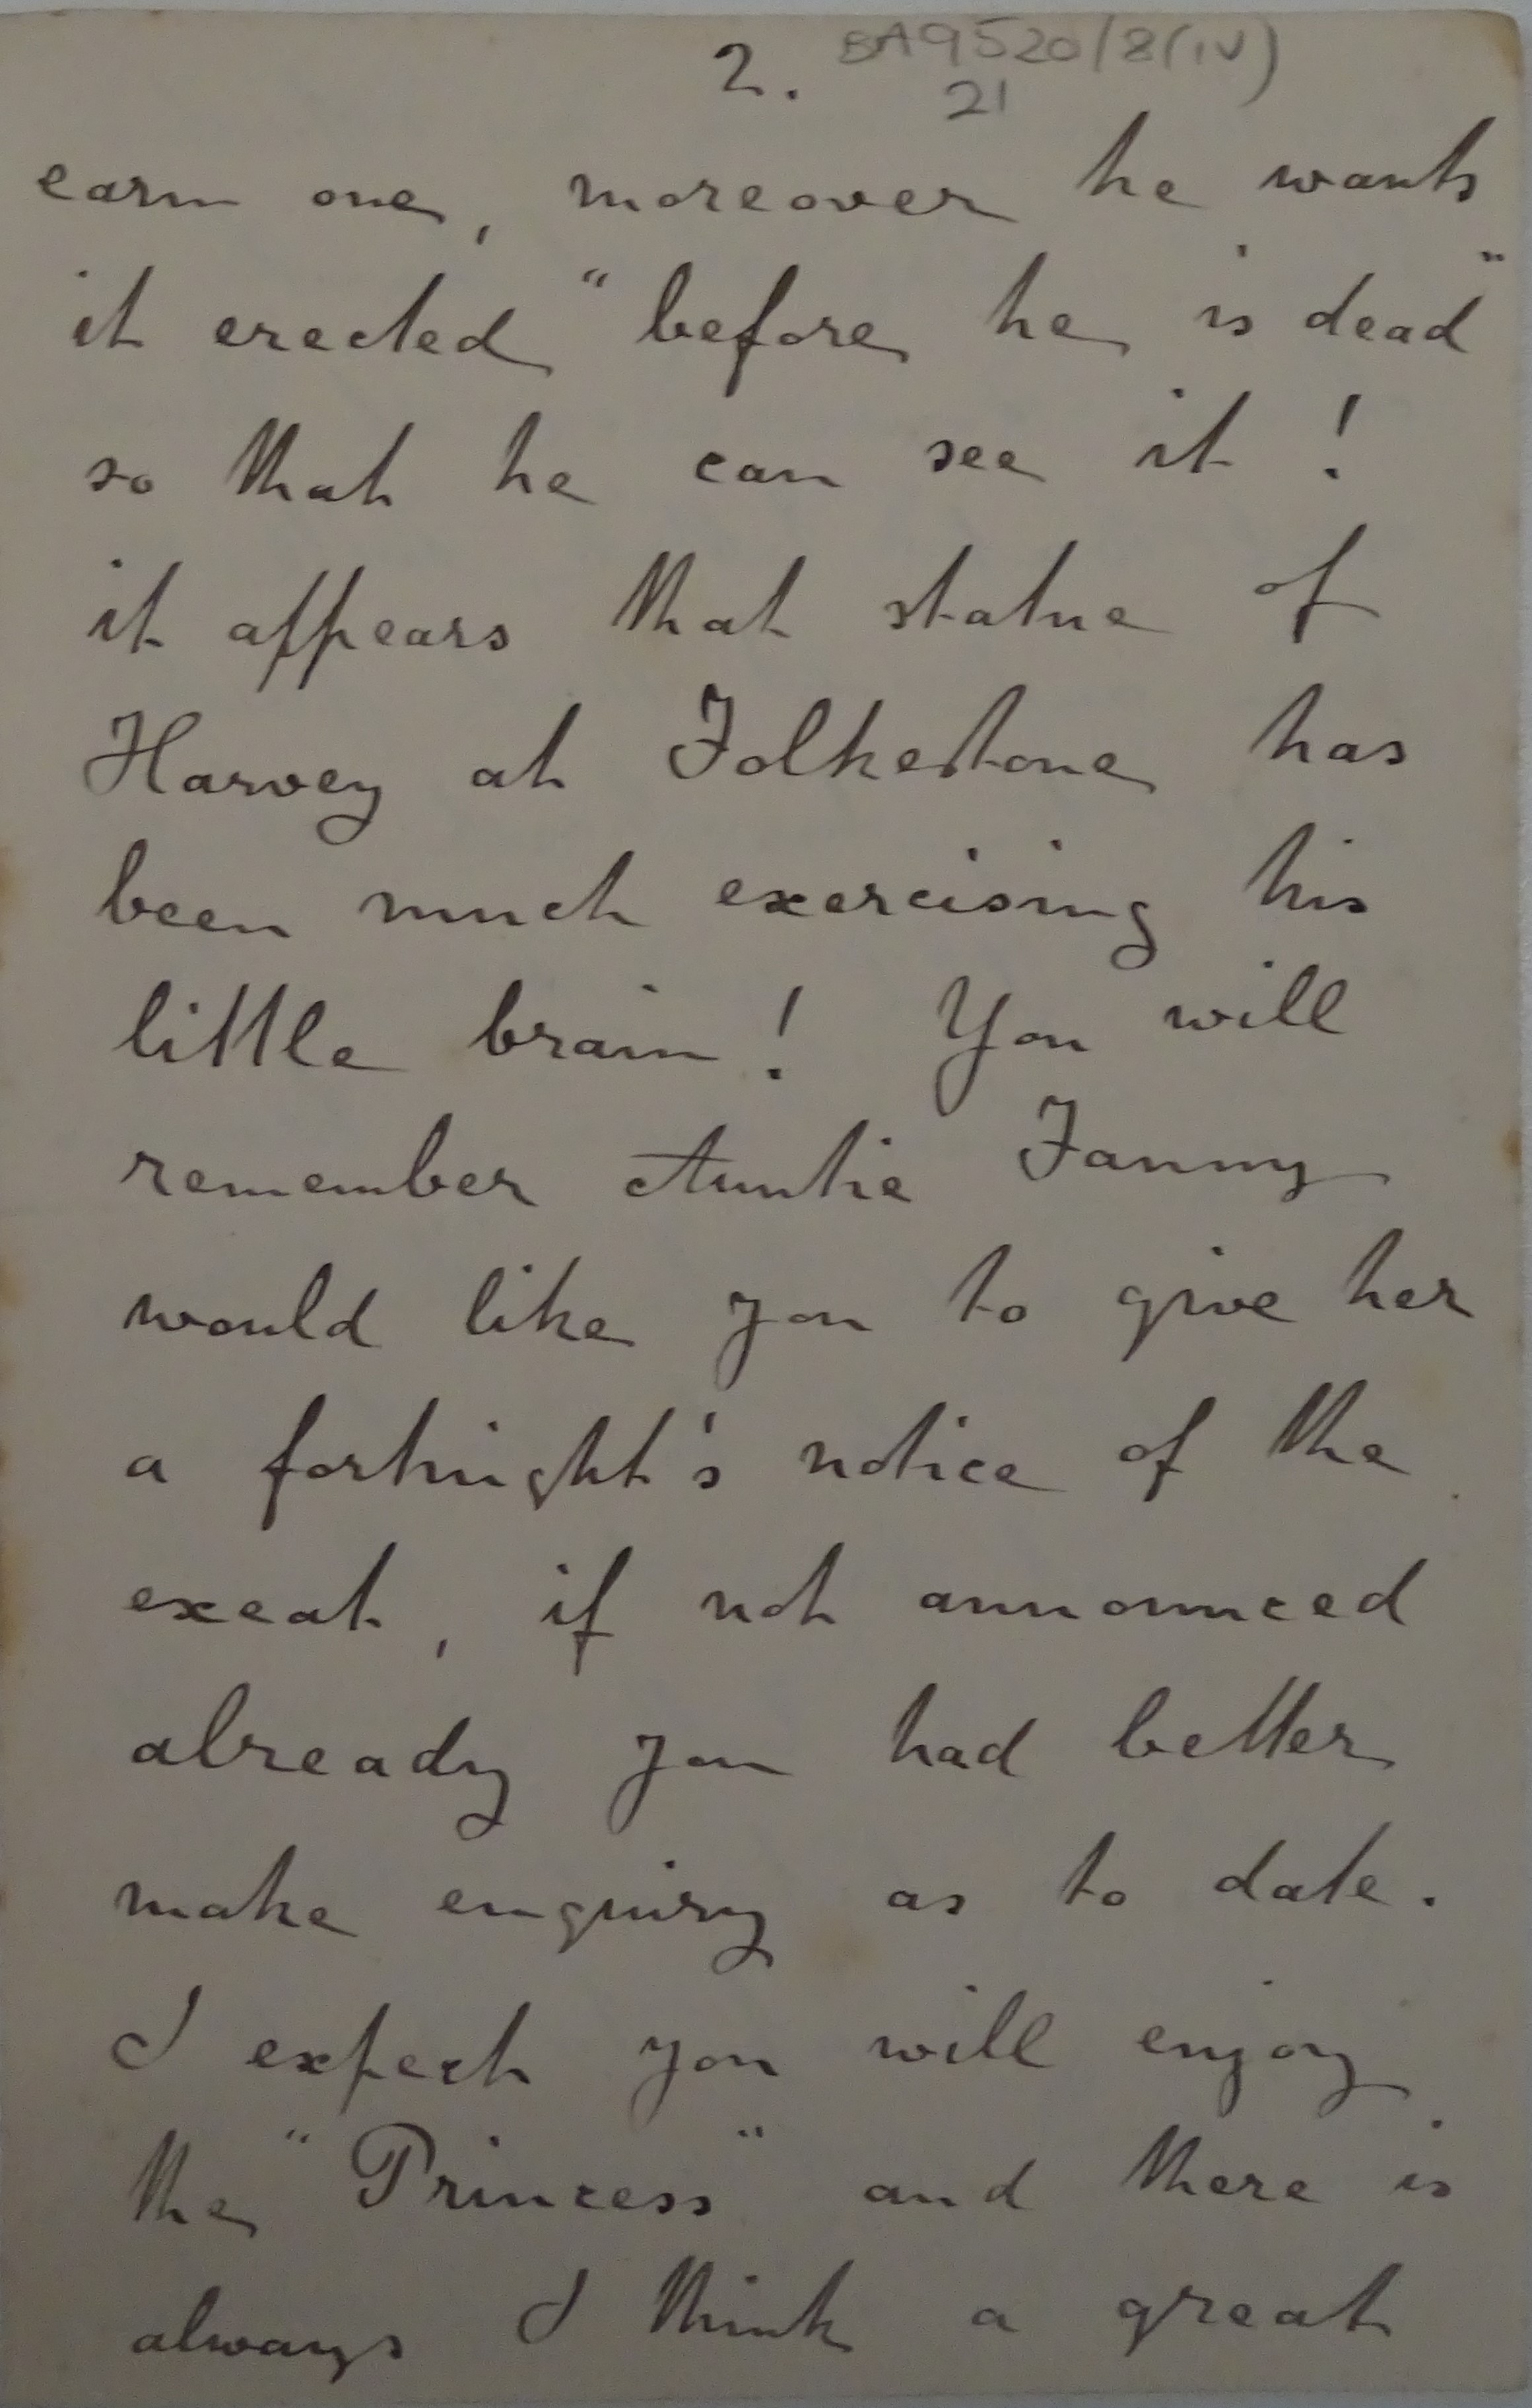 2. BA9520/8(iv)
21
earn one, moreover he wants
it erected "before he is dead"
so that he can see it!
it appears that statue of
Harvey at Folkestone has
been much exercising his
little brain! You will
remember Auntie Fanny
would like you to give her
a fortnight's notice of the
exeat, if not announced
already you had better
make enquiry as to date.
I expect you will enjoy
the "Princess" and there is
always I think a great